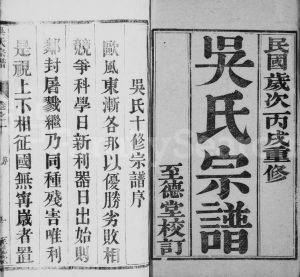 民國歲次丙戌重修
吳氏宗譜
至德堂校訂
吳氏十修宗譜序
歐風東漸各邦以優勝劣敗相
競爭科學日新利器日出始則
鄰封屠戮繼乃同種殘害唯利
是視上下相征國無寧歲者置